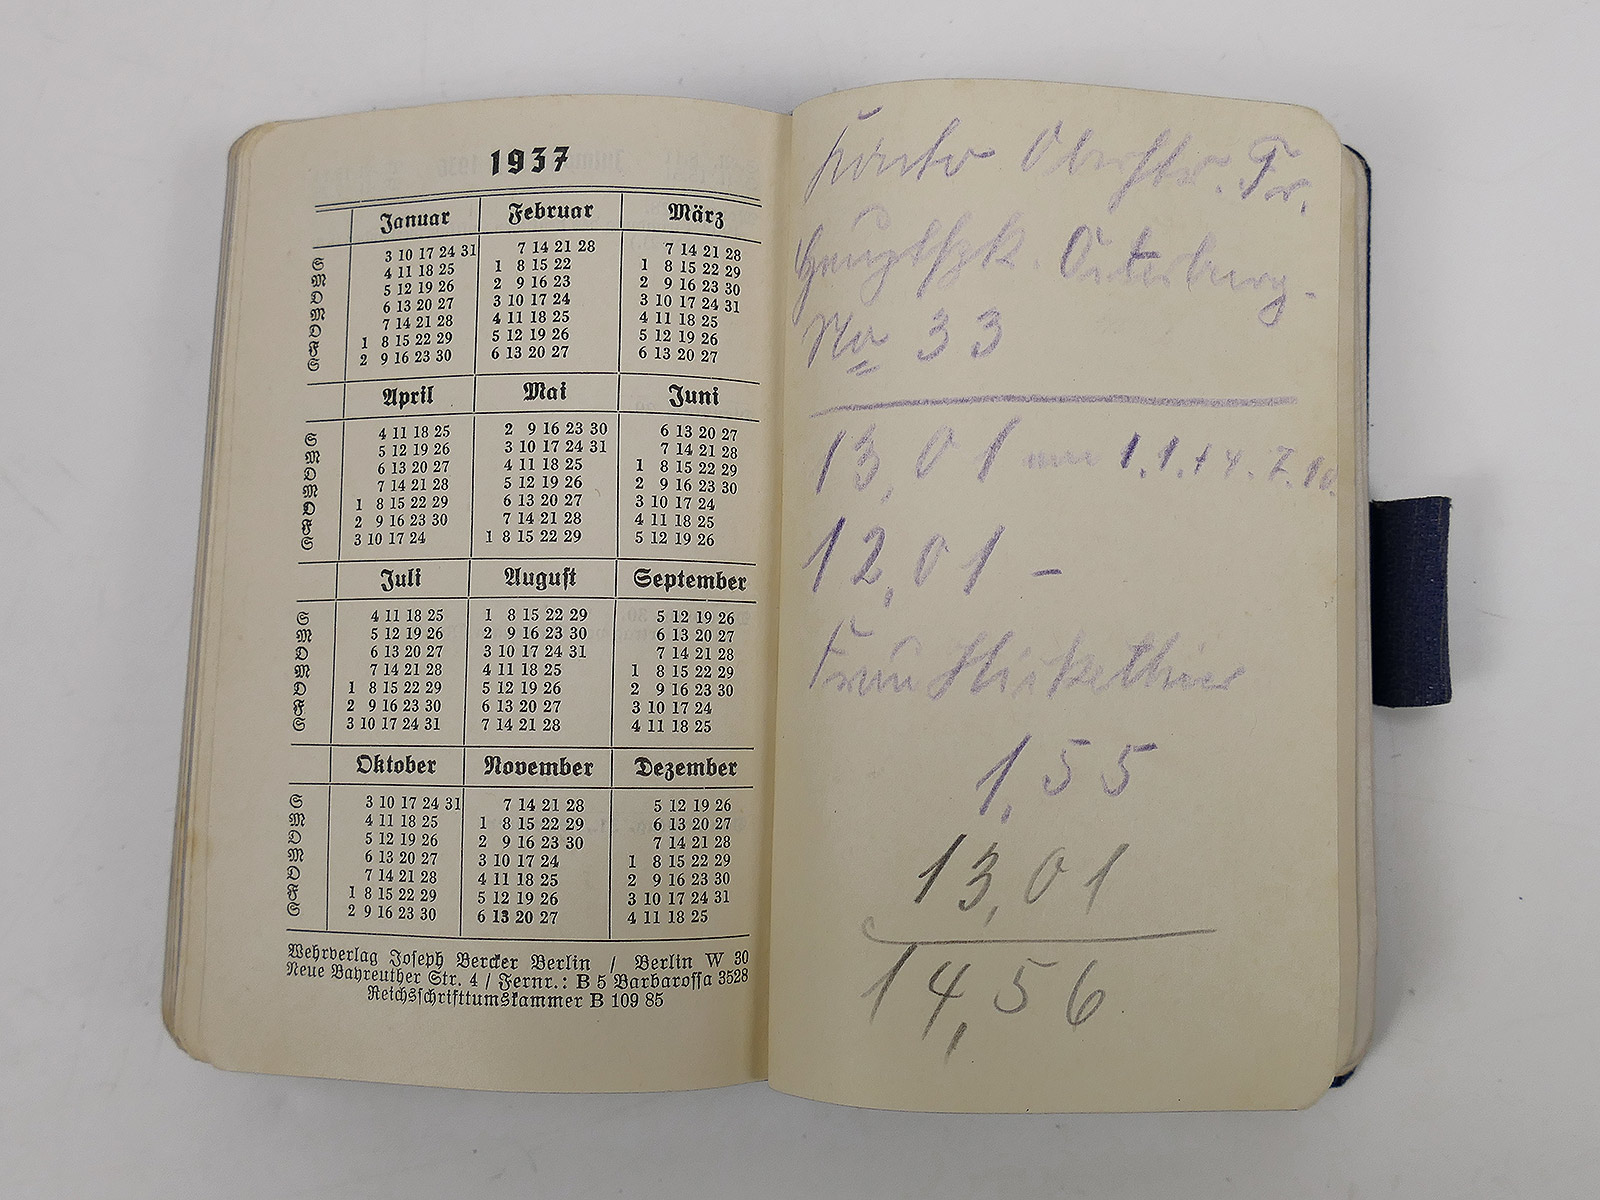 1937
Januar Februar März
S 3 10 17 24 31 7 14 21 28 7 14 21 28
M 4 11 18 25 1 8 15 22 1 8 15 22 29
D 5 12 19 26 2 9 16 23 2 9 16 23 30
M 6 13 20 27 3 10 17 24 3 10 17 24 31
D 7 14 21 28 4 11 18 25 4 11 18 25
F 1 8 15 22 29 5 12 19 26 5 12 19 26
S 2 9 16 23 30 6 13 20 27 6 13 20 27
April Mai Juni
S 4 11 18 25 2 9 16 23 30 6 13 20 27
M 5 12 19 26 3 10 17 24 31 7 14 21 28
D 6 13 20 27 4 11 18 25 1 8 15 22 29
M 7 14 21 28 5 12 19 26 2 9 16 23 30
D 1 8 15 22 29 6 13 20 27 3 10 17 24
F 2 9 16 23 30 7 14 21 28 4 11 18 25
S 3 10 17 24 1 8 15 22 29 5 12 19 26
Juli August September
S 4 11 18 25 1 8 15 22 29 5 12 19 26
M 5 12 19 26 2 9 16 23 30 6 13 20 27
D 6 13 20 27 3 10 17 24 31 7 14 21 28
M 7 14 21 28 4 11 18 25 1 8 15 22 29
D 1 8 15 22 29 5 12 19 26 2 9 16 23 30
F 2 9 16 23 30 6 13 20 27 3 10 17 24
S 3 10 17 24 31 7 14 21 28 4 11 18 25
Oktober November Dezember
S 3 10 17 24 31 7 14 21 28 5 12 19 26
M 4 11 18 25 1 8 15 22 29 6 13 20 27
D 5 12 19 26 2 9 16 23 30 7 14 21 28
M 6 13 20 27 3 10 17 24 1 8 15 22 29
D 7 14 21 28 4 11 18 25 2 9 16 23 30
F 1 8 15 22 29 5 12 19 26 3 10 17 24 31
S 2 9 16 23 30 6 13 20 27 4 11 18 25
Wehrverlag Joseph Bercker Berlin / Berlin W 30
Neue Bayreuther Str. 4 / Fernr.: B 5 Barbarossa 3528
Reichsschrifttumskammer B 109 85
Konto Oberstlt. Fr.
Osterburg
No 33
13,01 1.1.14.7.10.
12,01 –
Frau
1,55
13,01
14,56